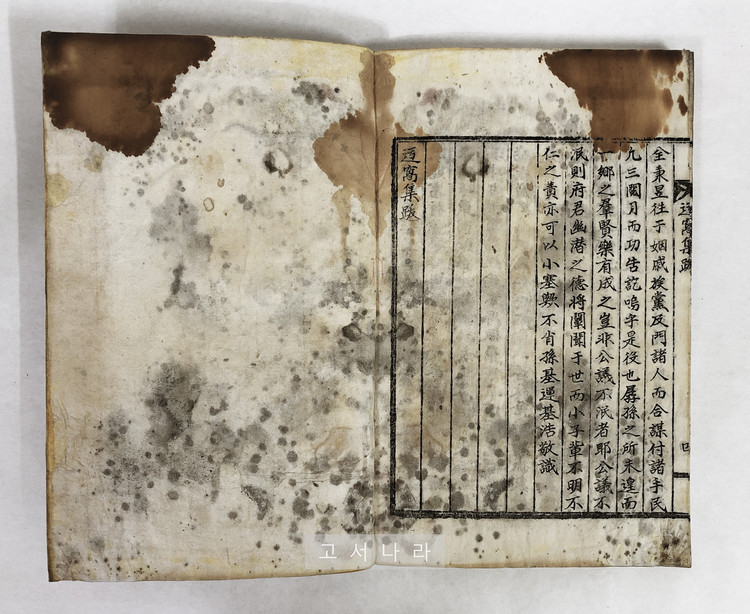 窩集跋
四
全秉昱往于姻戚族黨及門諸人而合謀付諸手民
九三閱月而功告訖嗚乎是役也孱孫之所未遑而
一鄉之羣賢樂有成之豈非公議不泯者耶公議不
泯則府君幽潛之德將闡聞于世而小子輩不明不
仁之責亦可以小塞歟不肖孫基運基浩敬識
窩集跋
고서나라